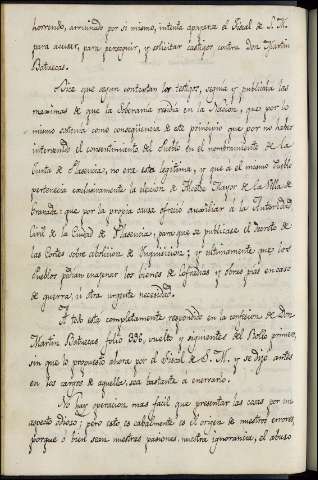 horrendo, arruinado por si mismo, intenta apoyarse el Fiscal de S. M.
para acusar, para perseguir, y solicitar castigos contra Don Martin
Batuecas.
Dice que segun contestan los testigos, seguia y publicaba las
maximas de que la Soberania residia en la Nacion, que por lo
mismo sostenia como consequencia de este principio que por no haber
intervenido el consentimiento del Pueblo en el nombramiento de la
Junta de Plasencia, no era esta legitima, y que a el mismo Pueblo
pertenecia exclusivamente la eleccion de Alcalde Mayor de la Villa de
Granada: que por la propia causa ofrecio auxiliar á la Autoridad
Civil de la Ciudad de Plasencia, para que se publicase el decreto de
las Cortes sobre abolicion de Inquisicion; y ultimamente que los
Pueblos podian enagenar los bienes de Cofradias y obras pias en caso
de guerra, ú otra urgente necesidad.
A todo esta completamente respondido en la confesion de Don
Martin Batuecas folio 396, vuelto y siguientes del Rollo primero,
sin que lo propuesto ahora por el Fiscal de S. M., y se dijo antes
en los cargos de aquella sea bastante a enervarlo.
No hay operacion mas facil que presentar las cosas por un
aspecto odioso; pero esto es cabalmente es el origen de nuestros errores,
porque ó bien sean nuestras pasiones, nuestra ignorancia, el abuso